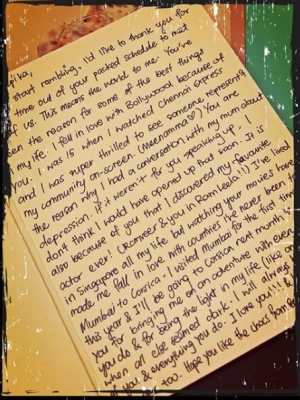 pika,
start rambling, I'd like to thank you for
time out of your packed schedule to meet
of us. This means the world to me. You've
een the reason for some of the best things
my life. I fell in love with Bollywood because of
you. I was 15 when I watched Chennai Express
and I was super thrilled to see someone represent
my community on-screen. (Meenamma ♡) You are
the reason why I had a conversation with my mum about
depression. If it weren't for you speaking up, I
don't think I would have opened up that soon. It is
also because of you that I discovered my favourite
actor ever. (Ranveer & you in Ram Leela!!!) I've lived
in Singapore all my life but watching your movies have
made me fall in love with countries I've never been to.
Mumbai to Corsica. I visited Mumbai for the first time
this year & I'll be going to Corsica next month
you for bringing me on an adventure with ever
you do & for being the light in my life (like
when all else seemed dark. I will always
you & everything you do. I love you!!! &
too. Hope you like the choc